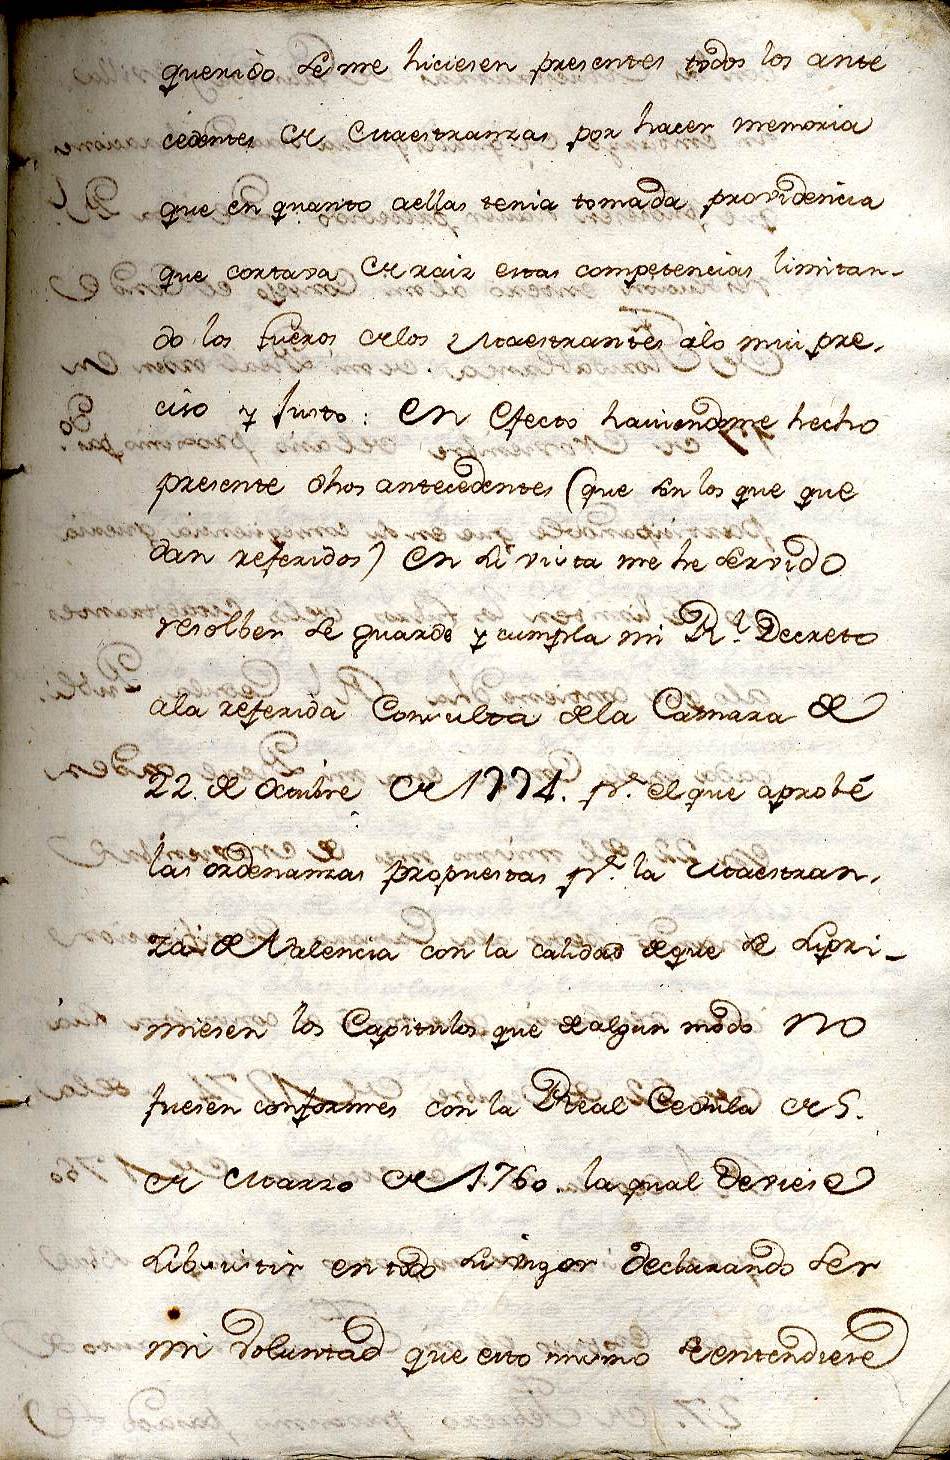 querido se me hiciesen presentes todos los ante
cedentes de Maestranzas por hacer memoria
que en quanto aellas tenia tomada providencia
que cortava de raiz estas competencias limitan-
do los fueros delos Maestrantes alo mui pre-
ciso y justo: En efecto haviendome hecho
presente dhos antecedentes (que son los que que
dan referidos) en su vista me he servido
resolber se guarde y cumpla mi Rl. Decreto
ala referida Consulta dela Camara de
22. de Octubre de 1774. pr. el que aprobé
las ordenanzas propuestas pr. la Maestran-
za de Valencia con la calidad de que se supri-
miesen los Capitulos que de algun modo no
fuesen conformes con la Real Cedula de 5.
de Marzo de 1760. la qual deviese
subsistir en todo su vigor declarando ser
mi voluntad que esto mismo se entendiese